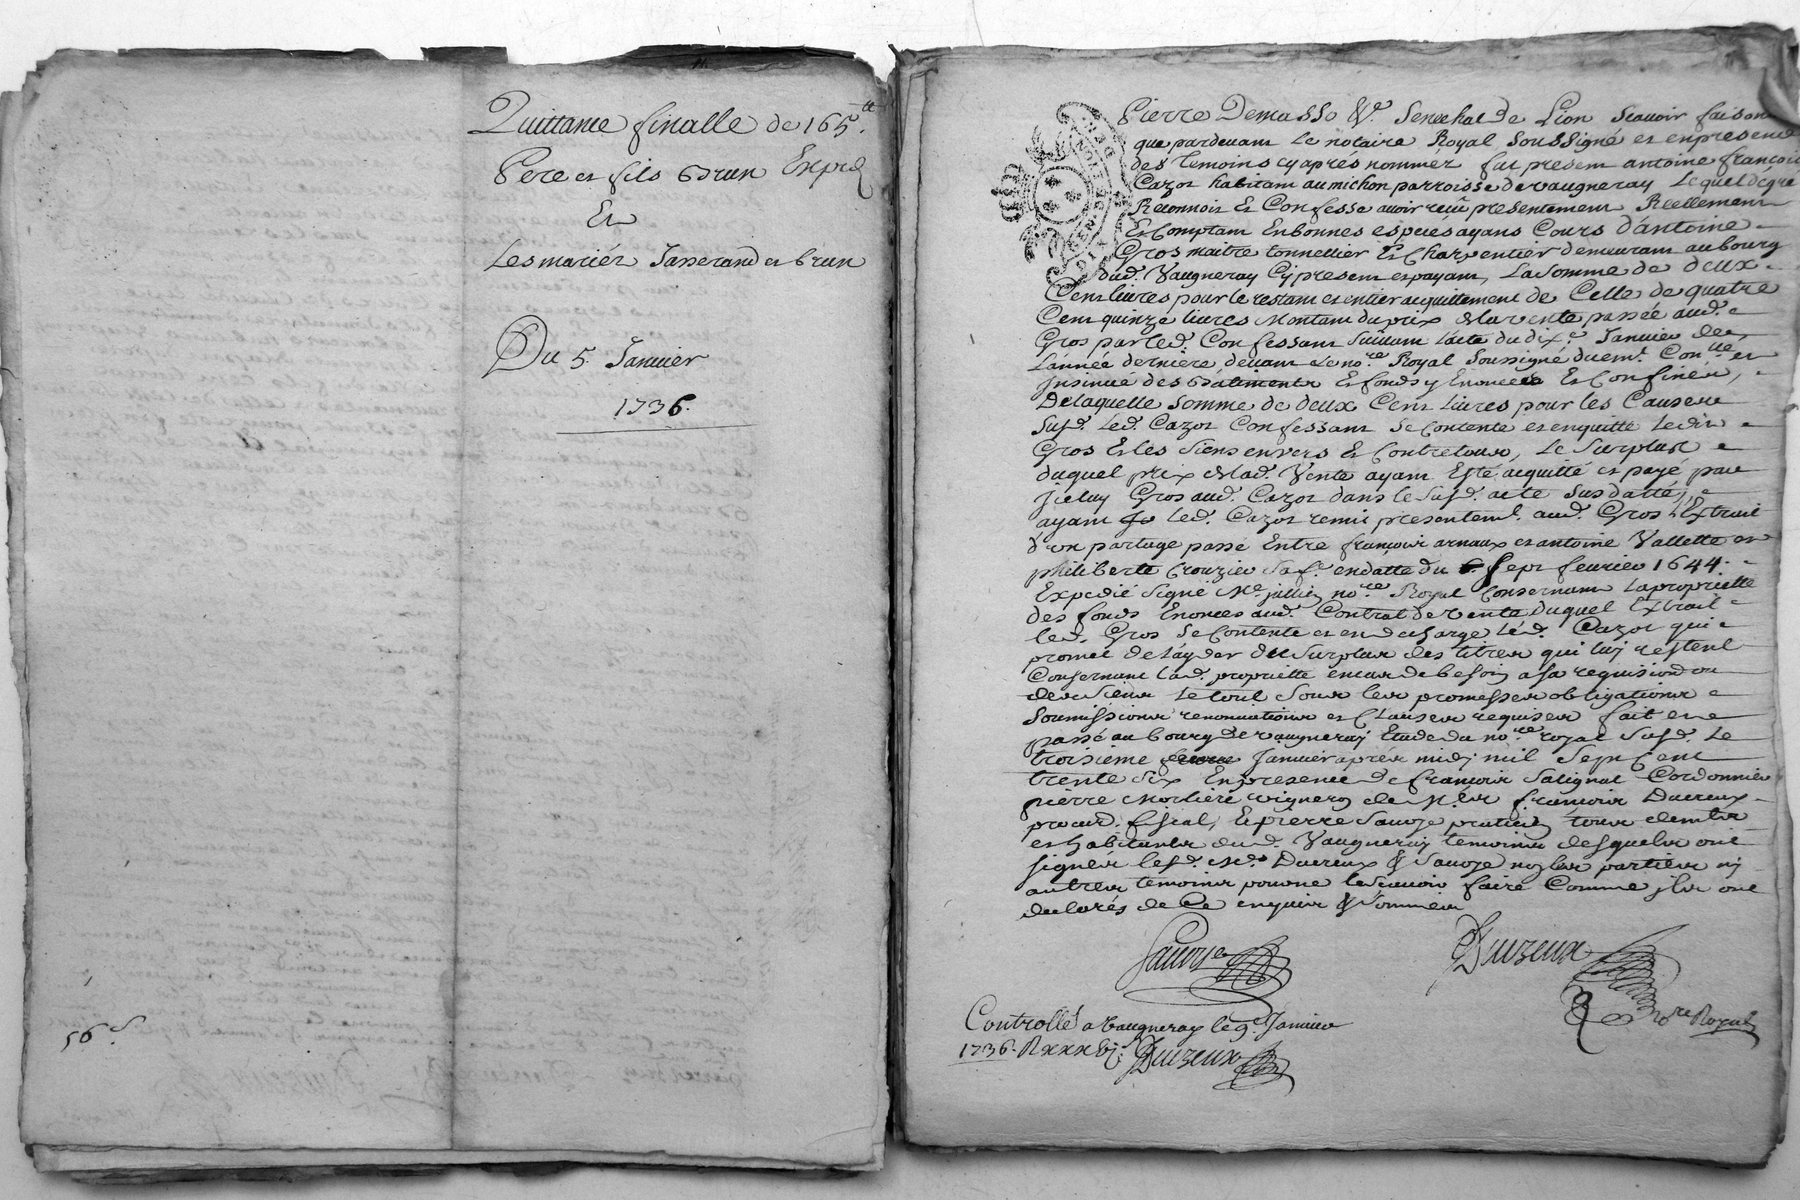 Quittance finalle de 165 tt.
Pere et fils Brun Exp.d
Et
Les mariéz Jasserand et brun
Du 5 Janvier
1736.
56 s.
Pierre Demasso &c. Senechal de Lion scavoir faisons
que pardevant Le notaire Royal soussigné et en presence
des temoins cy apres nommez fut present antoine françois
Cazot habitant au michon parroisse de vaugneray Lequel de gré
Reconnoit Et Confesse avoir reçu presentement Reellement
Et Comptant En bonnes especes ayans Cours d'antoine
Gros maitre tonnellier Et Charpentier demeurant au bourg
dud. Vaugneray Cy present et payant, La somme de deux
Cens livres pour le restant et entier acquittement de Celle de quatre
Cens quinze livres Montant du prix de la vente passée aud.
Gros par led. Confessant suivant L'acte du dix.e Janvier de
L'année derniere devant Le no.re Royal soussigné duem.t Con.llé et
Insinué des batiments Et fonds y Enoncés Et Confinés,
De laquelle somme de deux Cens Livres pour les Causes
susd. Led. Cazot Confessant se Contente et en quitte Ledit
Gros Et les siens envers Et Contre tous, Le surplus
duquel prix de lad. Vente ayant Esté acquitté et payé par
Jceluy Gros aud. Cazot dans le susd. acte susdatté,
ayant Led. Cazot remis presentem.t aud. Gros L'Extrait
d'un partage passé Entre françois arnaux et antoine Vallette et
philiberte Crouzier sa f.e en datte du sept fevrier 1644.
Expedié signé M.e jullien no.re Royal Consernant La proprietté
des fonds Enoncés aud. Contrat de vente duquel Extrait
led. Gros se Contente et en decharge Led. Cazot qui
promet de l'ayder du surplus des titres qui luy restent
Consernant lad. proprietté en cas de besoin a sa requisition ou
des siens Le tout sous les promesses obligations
soumissions renonciations et Clauses requises fait et
passé au bourg de vaugneray Etude du no.re royal susd. Le
troisieme Janvier après midy mil sept Cent
trente six En presence de françois salignat Cordonnier
pierre Morliere vigneron de M.e françois Ducreux
procur. fiscal, Et pierre Sauvye praticien tous demts
et habitants dud. Vaugneray temoins desquels ont
signés lesd. M.e Ducreux & Sauvye non les parties ny
autres temoins pour ne le scavoir faire Comme jls ont
declarés de Ce enquis & sommés
Sauvye
Duizeux
no.re Royal
Controllé a vaugneray le 9.e Janvier
1736. R xxx bj s. Duizeux